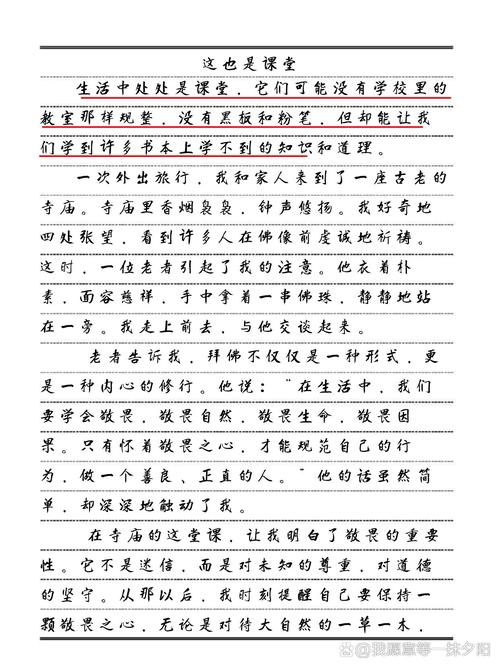 这也是课堂
生活中处处是课堂，它们可能没有学校里的
教室那样规整，没有黑板和粉笔，但却能让我
们学到许多书本上学不到的知识和道理。
一次外出旅行，我和家人来到了一座古老的
寺庙。寺庙里香烟袅袅，钟声悠扬。我好奇地
四处张望，看到许多人在佛像前虔诚地祈祷。
这时，一位老者引起了我的注意。他衣着朴
素，面容慈祥，手中拿着一串佛珠，静静地站
在一旁。我走上前去，与他交谈起来。
老者告诉我，拜佛不仅仅是一种形式，更
是一种内心的修行。他说：“在生活中，我们
要学会敬畏，敬畏自然，敬畏生命，敬畏因
果。只有怀着敬畏之心，才能规范自己的行
为，做一个善良、正直的人。”他的话虽然简
单，却深深地触动了我。
在寺庙的这堂课，让我明白了敬畏的重要
性。它不是迷信，而是对未知的尊重，对道德
的坚守。从那以后，我时刻提醒自己要保持一
颗敬畏之心，无论是对待大自然的一草一木，
@我愿意等一抹夕阳